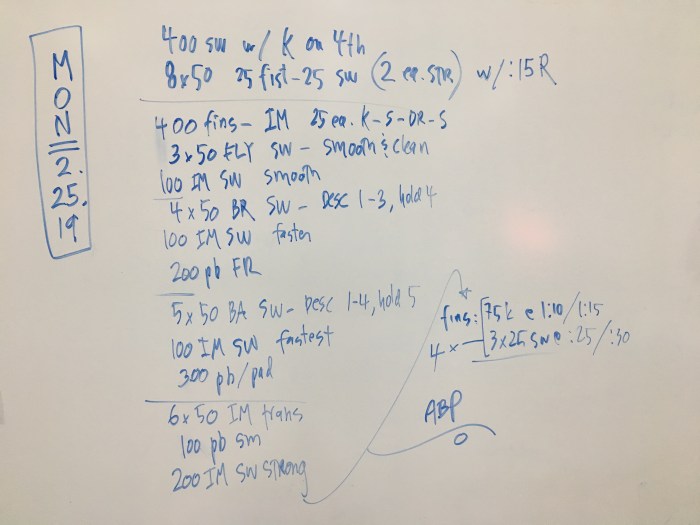 MON 2.25.19
400 SW w/ K on 4th
8x50 25 fist-25 SW (2 ea. STR) w/:15R
400 fins- IM 25 ea. K-S-DR-S
3x50 FLY SW - smooth & clean
100 IM SW smooth
4x50 BR SW - DESC 1-3, hold 4
100 IM SW faster
200 pb FR
5x50 BA SW - DESC 1-4, hold 5
100 IM SW fastest
300 pb/pad
6x50 IM trans
100 pb sm
200 IM SW STRONG
fins: 75K @ 1:10/1:15
4x 3x25 SW @ :25/:30
ABP